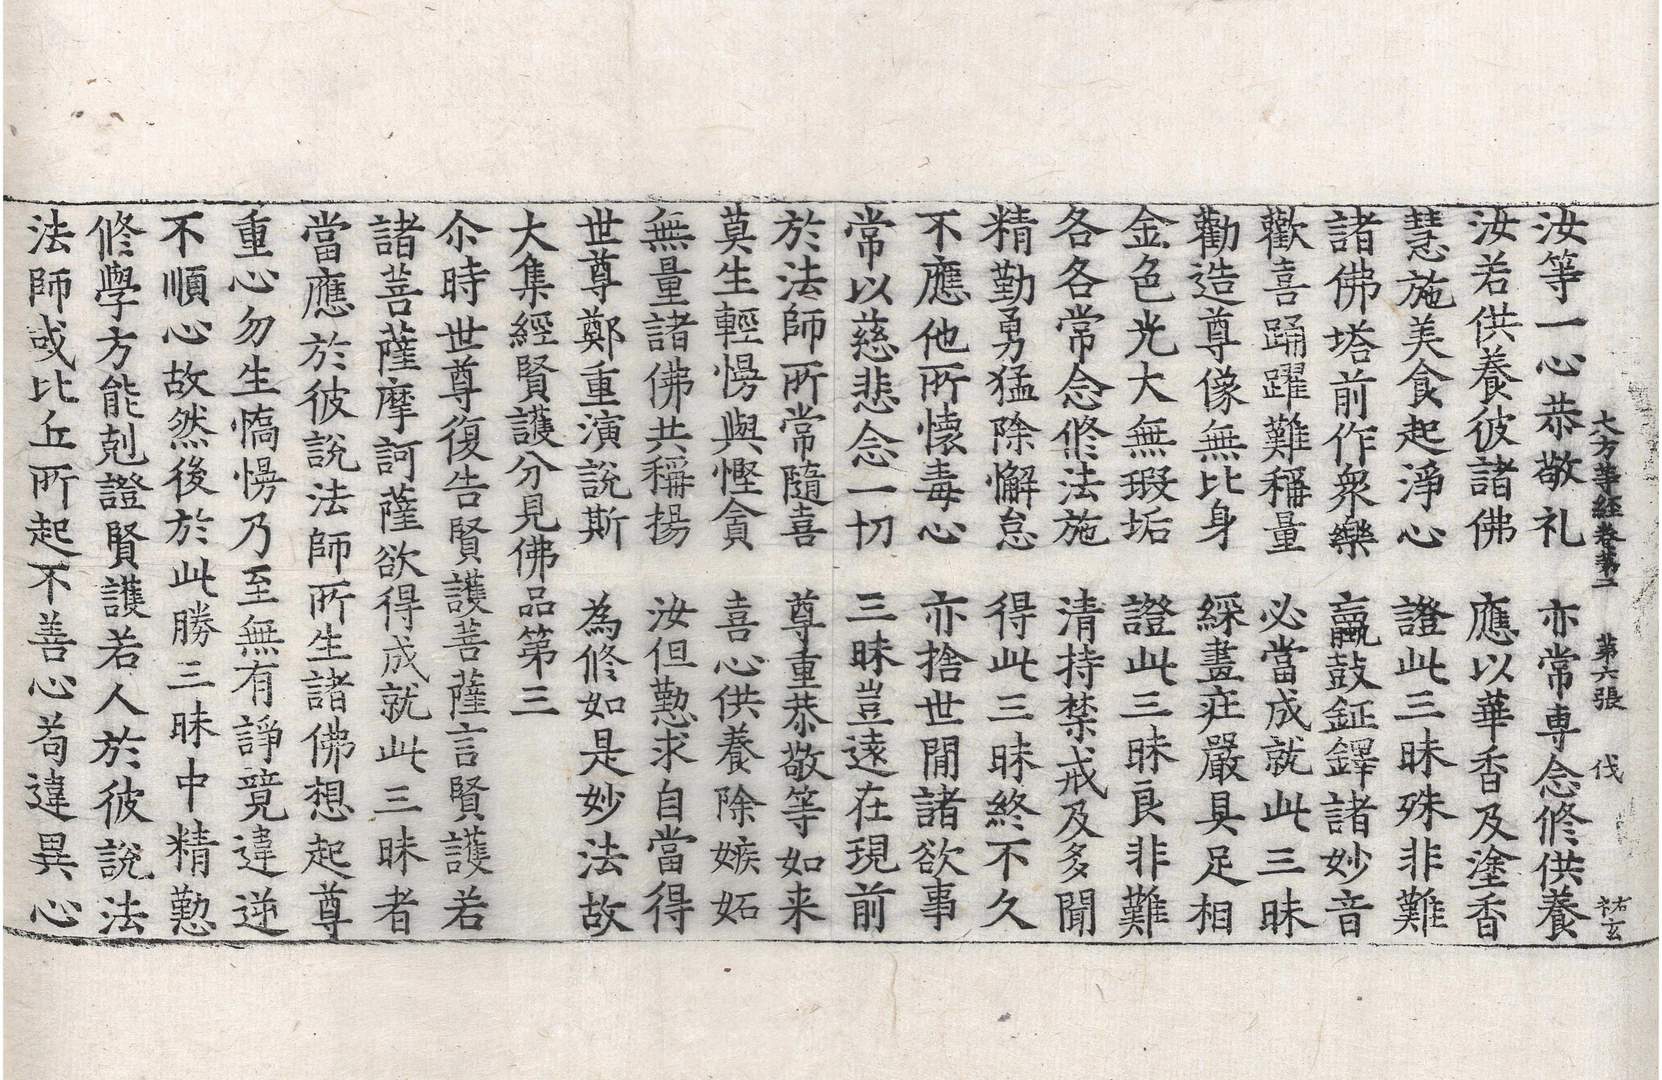 大方等大集經卷第二 第六張 伐 祐玄
汝等一心恭敬礼 亦常專念修供養
汝若供養彼諸佛 應以華香及塗香
慧施美食起淨心 證此三昧殊非難
諸佛塔前作衆樂 蠃鼓鉦鐸諸妙音
歡喜踊躍難稱量 必當成就此三昧
勸造尊像無比身 綵畫疘嚴具足相
金色光大無瑕垢 證此三昧良非難
各各常念修法施 清持禁戒及多聞
精勤勇猛除懈怠 得此三昧終不久
不應他所懷毒心 亦捨世閒諸欲事
常以慈悲念一切 三昧豈遠在現前
於法師所常隨喜 尊重恭敬等如来
莫生輕慢與慳貪 喜心供養除嫉妬
無量諸佛共稱揚 汝但懃求自當得
世尊鄭重演說斯 為修如是妙法故
大集經賢護分見佛品第三
尒時世尊復告賢護菩薩言賢護若
諸菩薩摩訶薩欲得成就此三昧者
當應於彼說法師所生諸佛想起尊
重心勿生憍慢乃至無有諍競違逆
不順心故然後於此勝三昧中精懃
修學方能剋證賢護若人於彼說法
法師或比丘所起不善心苟違異心